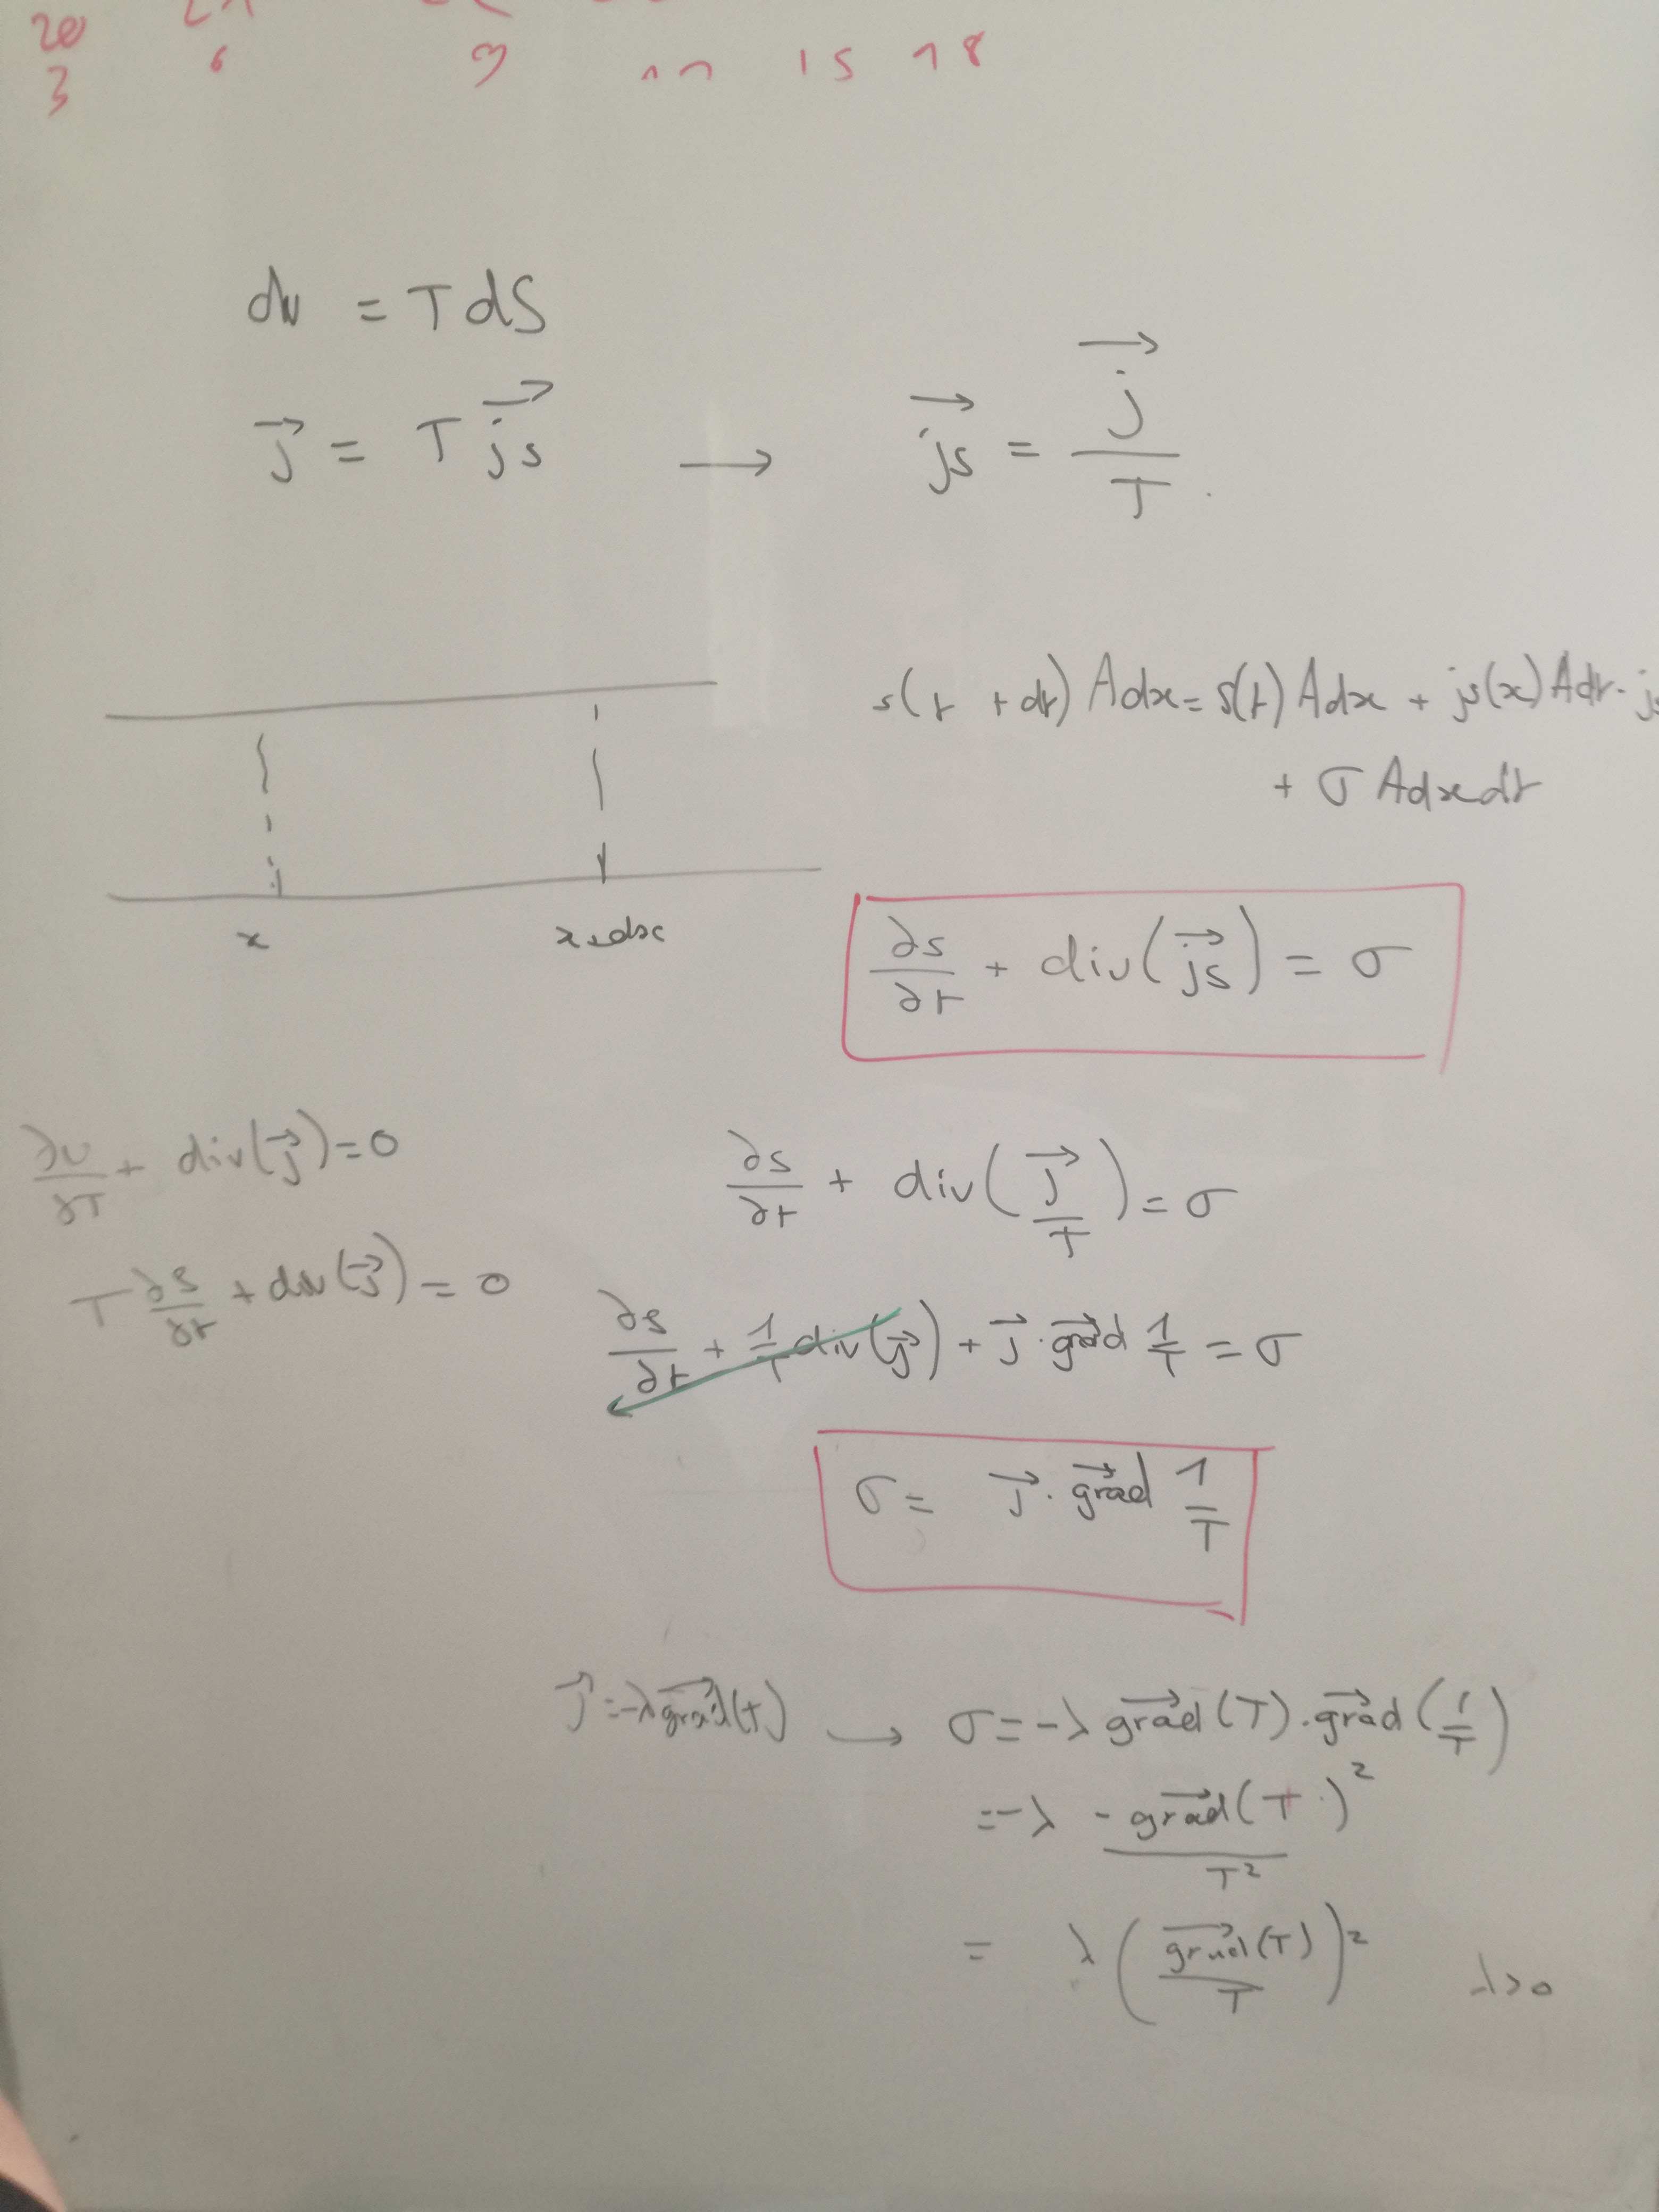 20
3 6 9 15 18
du = T dS
j⃗ = T j⃗s → j⃗s = j⃗/T
s(t + dt) Adx = s(t) Adx + js(x) Adt - js
+ σ Adxdt
x x+dx
∂s/∂t + div(j⃗s) = σ
∂u/∂T + div(j⃗) = 0
∂s/∂t + div(j⃗/T) = σ
T ∂s/∂t + div(j⃗) = 0
∂s/∂t + 1/T div(j⃗) + j⃗ · grad 1/T = σ
σ = j⃗ · grad 1/T
j⃗ = -λ grad(T) → σ = -λ grad(T) · grad(1/T)
= -λ - grad(T)² / T²
= λ (grad(T)/T)² λ>0